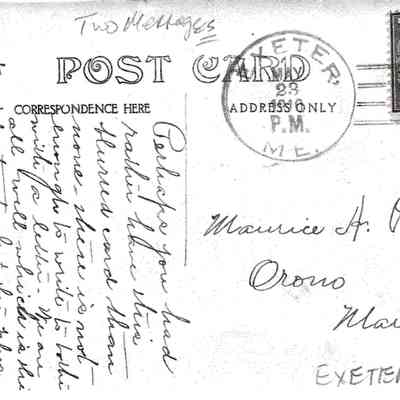 Two Messages
POST CARD
CORRESPONDENCE HERE
ADDRESS ONLY
EXETER,
MAY
23
P.M.
ME.
Perhaps you had
rather have this
blurred card than
none. there is not
enough to write to bother
with a letter. We are
all well which is the
Maurice H.
Orono
EXETER